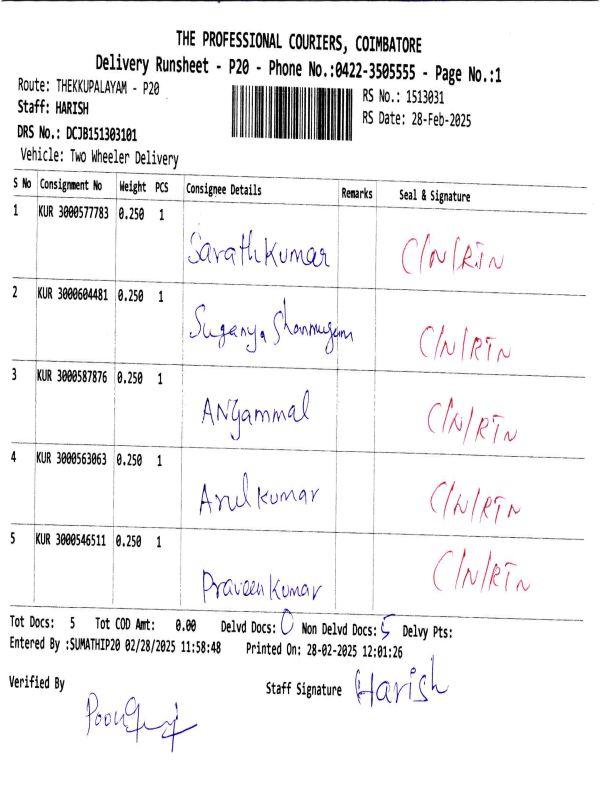 THE PROFESSIONAL COURIERS, COIMBATORE
Delivery Runsheet - P20 - Phone No.:0422-3505555 - Page No.:1
Route: THEKKUPALAYAM - P20
RS No.: 1513031
Staff: HARISH
RS Date: 28-Feb-2025
DRS No.: DCJB151303101
Vehicle: Two Wheeler Delivery
S No Consignment No Weight PCS Consignee Details Remarks Seal & Signature
1 KUR 3000577783 0.250 1
SarathKumar C/N/RTN
2 KUR 3000604481 0.250 1
Suganya Shanmugam C/N/RTN
3 KUR 3000587876 0.250 1
ANgammal C/N/RTN
4 KUR 3000563063 0.250 1
Arulkumar C/N/RTN
5 KUR 3000546511 0.250 1
PraveenKumar C/N/RTN
Tot Docs: 5 Tot COD Amt: 0.00 Delvd Docs: 0 Non Delvd Docs: 5 Delvy Pts:
Entered By :SUMATHIP20 02/28/2025 11:58:48 Printed On: 28-02-2025 12:01:26
Verified By Staff Signature Harish